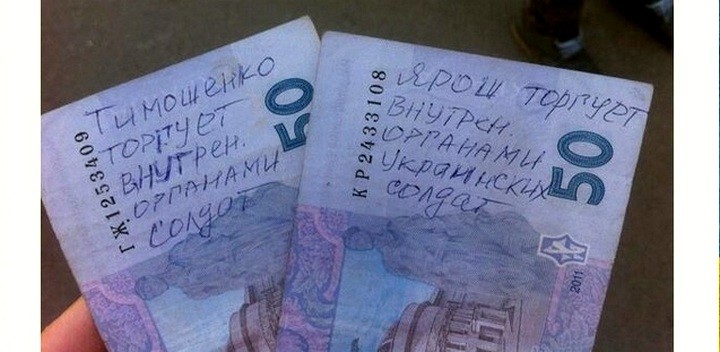 Тимошенко
торгует
внутрен.
органами
солдат
ГЖ1253409
50
Ярош торгует
внутрен.
органами
украинских
солдат
КР2433108
50
2011